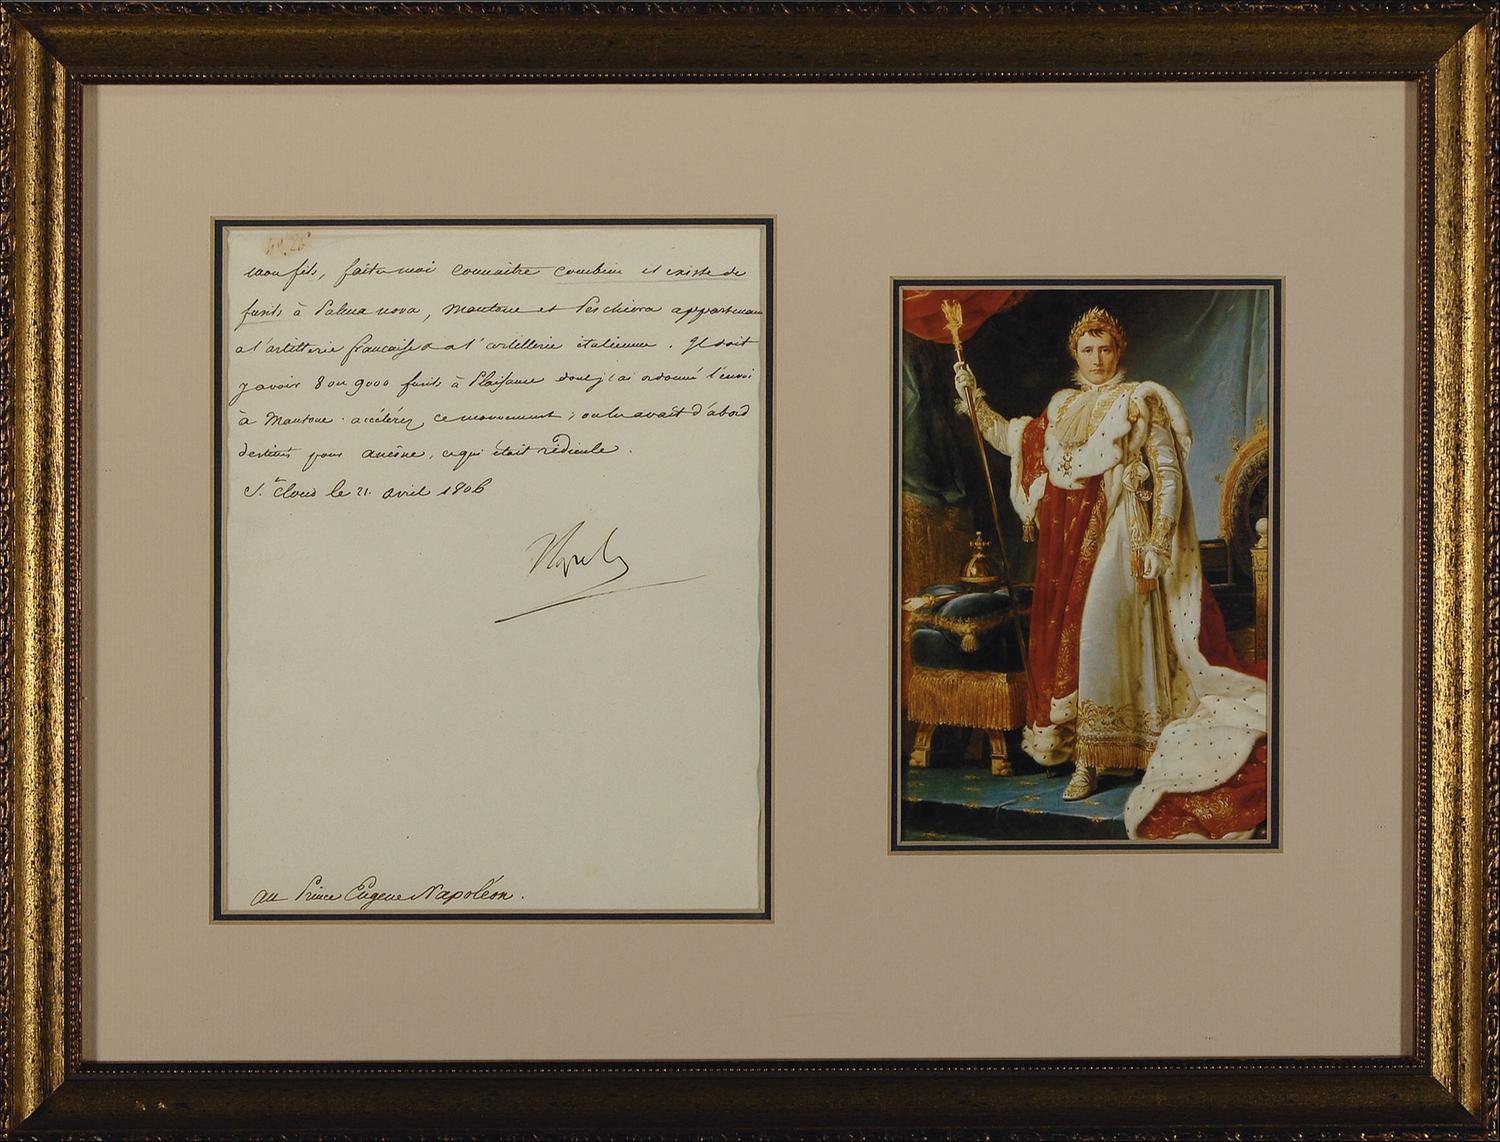 mon fils, faites moi connaitre combien il existe de
fusils à Palma nova, Mantoue et Peschiera appartenant
a l'artillerie francaise & a l'artillerie italienne. Il doit
y avoir 8 ou 9000 fusils à Plaisance dont j'ai ordonné l'envoi
à Mantoue. accélérez ce mouvement; on les avait d'abord
destinés pour ancône, ce qui était ridicule.
St. Cloud le 21. avril 1806
Napole
au Prince Eugene Napoléon.